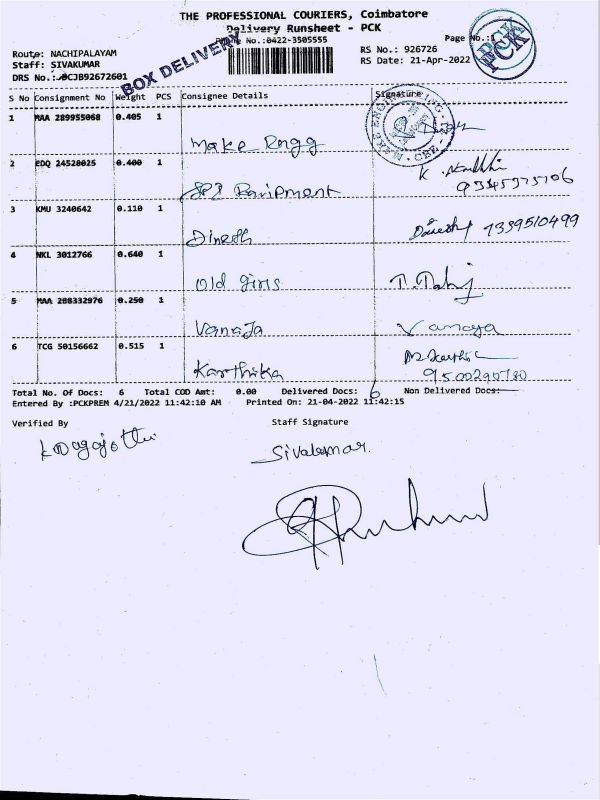 THE PROFESSIONAL COURIERS, Coimbatore
Delivery Runsheet - PCK
Phone No.:0422-3505555
Page No.:1
Route: NACHIPALAYAM
RS No.: 926726
Staff: SIVAKUMAR
RS Date: 21-Apr-2022
DRS No.: CJB92672601
BOX DELIVERY
PCK
S No Consignment No Weight PCS Consignee Details Signature
1 MAA 289955068 0.405 1
Make Engg
2 EDQ 24528025 0.400 1
K.
3 KMU 3240642 0.110 1
Dinesh Dinesh 7339510499
4 NKL 3012766 0.640 1
old girls
5 MAA 288332976 0.250 1
Vanaja Vanaja
6 TCG 50156662 0.515 1
Karthika
9500290780
Total No. Of Docs: 6 Total COD Amt: 0.00 Delivered Docs: 6 Non Delivered Docs:
Entered By :PCKPREM 4/21/2022 11:42:10 AM Printed On: 21-04-2022 11:42:15
Verified By Staff Signature
Sivakumar.